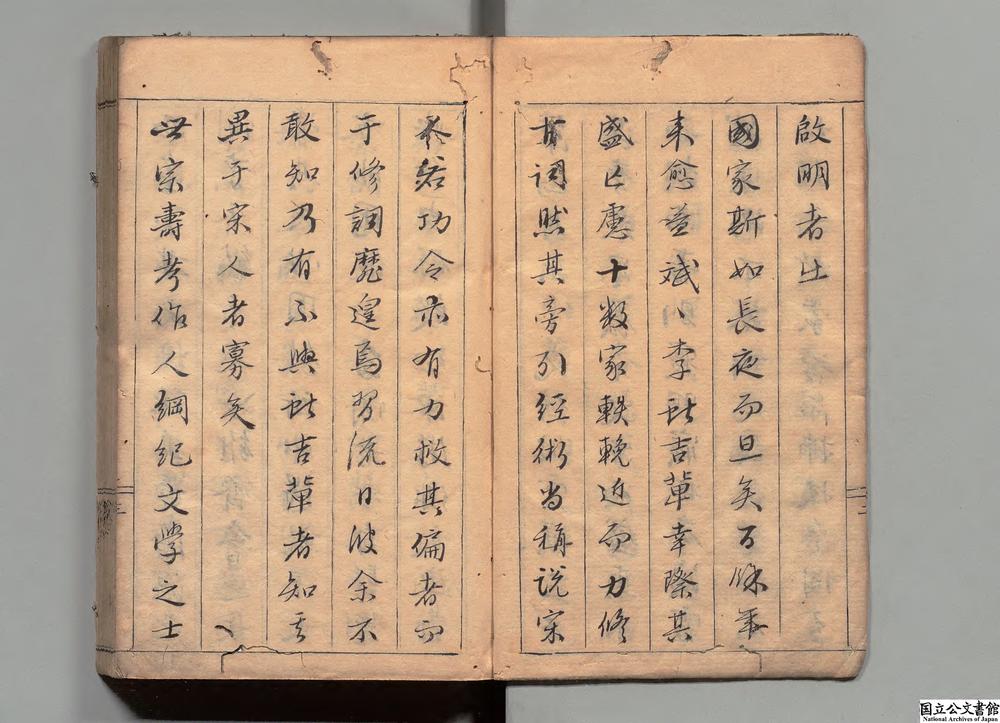 啟明者出
國家斯如長夜而旦矣百餘年
來愈益斌〻李獻吉輩幸際其
盛已慮十數家軼輓近而力脩
古詞然其旁引經術尚稱說宋
人若功令亦有力救其偏者而
于修詞靡遑焉習流日波余不
敢知乃有不與獻吉輩者知其
異于宋人者寡矣
世宗壽考作人綱紀文學之士
国立公文書館
National Archives of Japan